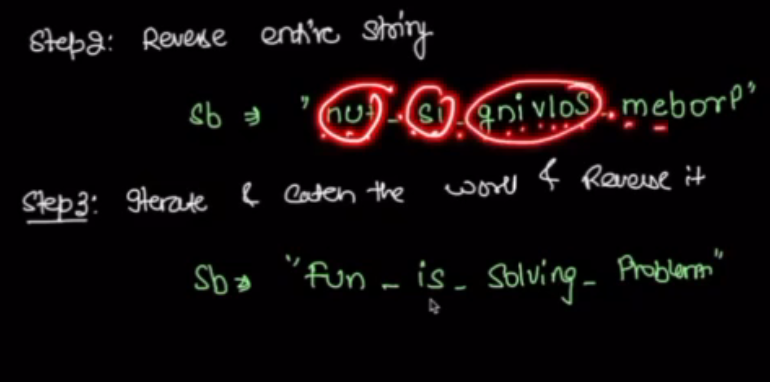 Step2: Reverse entire string
Sb ⇒ "nuf_si_gnivloS_meborP"
Step3: Iterate & Catch the word & Reverse it
Sb ⇒ "Fun_is_Solving_Problem"